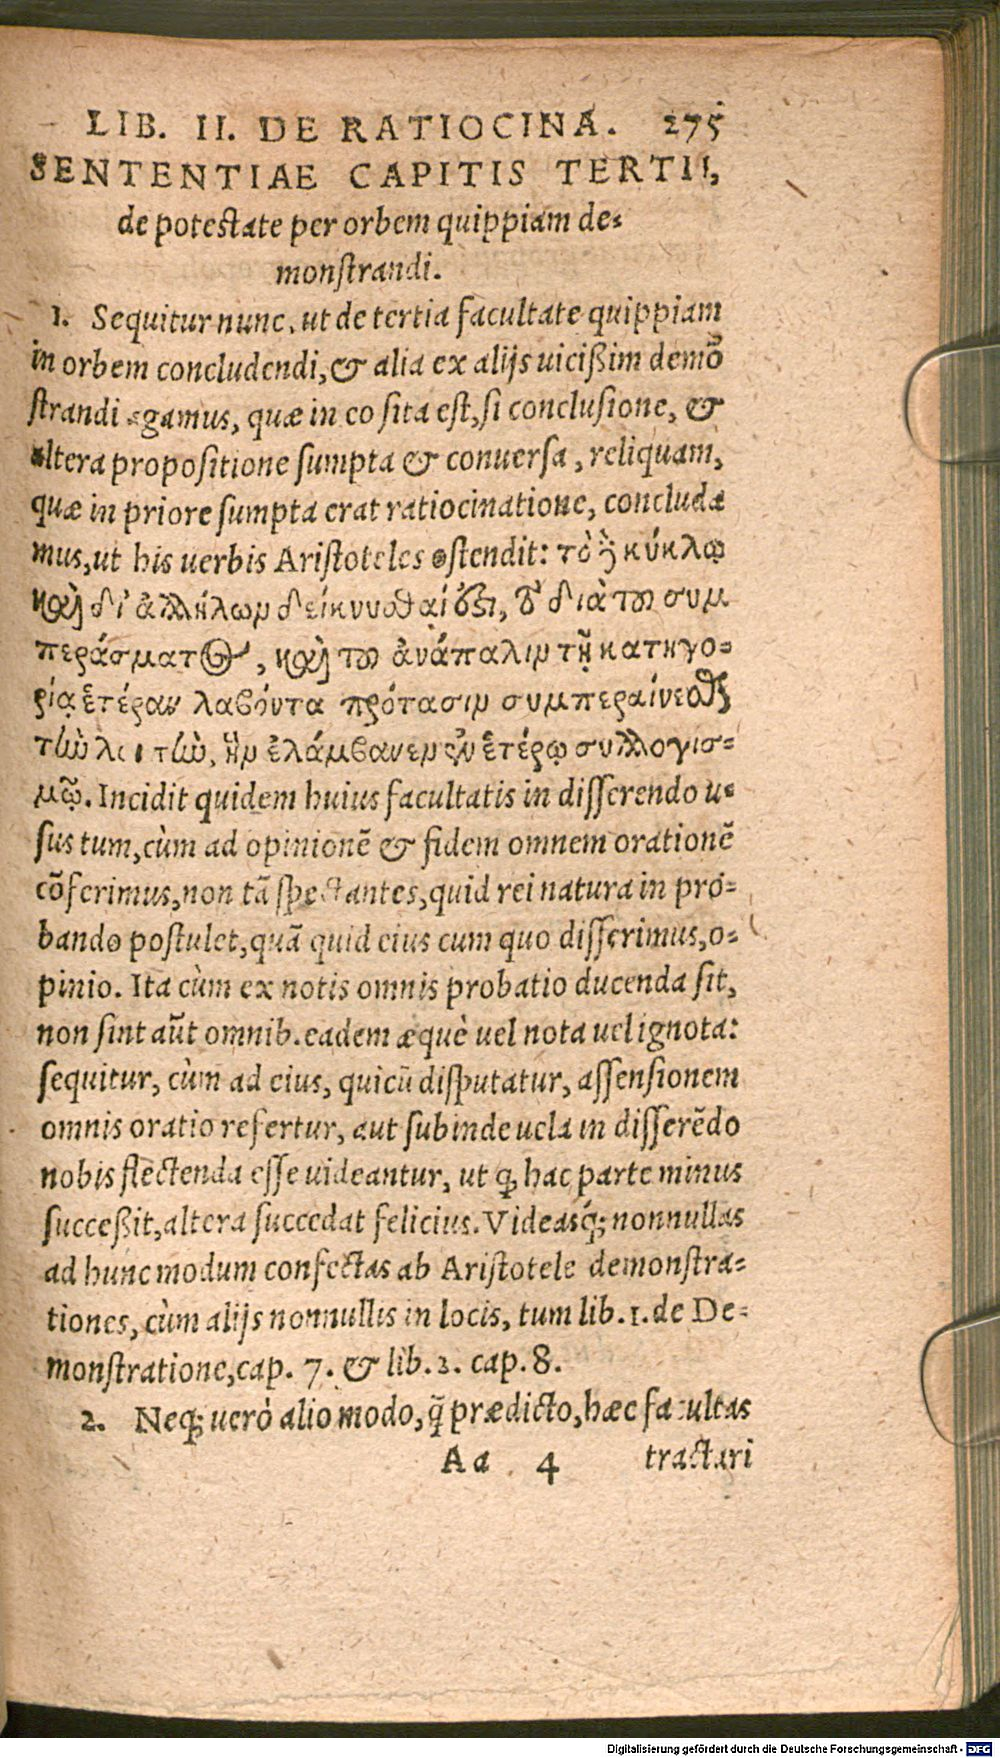 LIB. II. DE RATIOCINA. 275
SENTENTIAE CAPITIS TERTII,
de potestate per orbem quippiam de-
monstrandi.
1. Sequitur nunc, ut de tertia facultate quippiam
in orbem concludendi, & alia ex alijs uicißim demõ
strandi agamus, quæ in eo sita est, si conclusione, &
altera propositione sumpta & conuersa, reliquam,
quæ in priore sumpta erat ratiocinatione, concluda
mus, ut his uerbis Aristoteles ostendit: τὸ ἢ κύκλῳ
καὶ δι' ἀλλήλων δείκνυσθαί ὅτι, τὸ διὰ τοῦ συμ
περάσματος, καὶ τοῦ ἀνάπαλιν τῇ κατηγο-
ρίᾳ ἑτέραν λαβόντα πρότασιν συμπεραίνεσθαι
τὼ λοιπὼ, ἣν ἐλάμβανεν ἐν ἑτέρῳ συλλογισ-
μῷ. Incidit quidem huius facultatis in disserendo u-
sus tum, cùm ad opinionẽ & fidem omnem orationẽ
cõferimus, non tã spectantes, quid rei natura in pro-
bando postulet, quã quid eius cum quo disserimus, o-
pinio. Ita cùm ex notis omnis probatio ducenda sit,
non sint aũt omnib. eadem æquè uel nota uel ignota:
sequitur, cùm ad eius, quicũ disputatur, assensionem
omnis oratio refertur, aut subinde uela in disserẽdo
nobis flectenda esse uideantur, ut ꝗ hac parte minus
succeßit, altera succedat felicius. Videasq́; nonnullas
ad hunc modum confectas ab Aristotele demonstra-
tiones, cùm alijs nonnullis in locis, tum lib. 1. de De-
monstratione, cap. 7. & lib. 2. cap. 8.
2. Neq; uerò alio modo, q̃ prædicto, hæc facultas
Aa 4 tractari
Digitalisierung gefördert durch die Deutsche Forschungsgemeinschaft - DFG